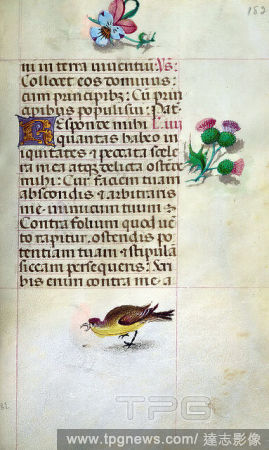 183
ni in terra viventium: Vs:
Collocet eos dominus:
cum principibus: Cu prin
cipibus populi sui: Pat
Responde mihi: L. iiij
Quantas habeo in
iquitates & peccata scele
ra mea atque delicta ostede
mihi: Cur faciem tuam
abscondis & arbitraris
me inimicum tuum:
Contra folium quod ve
to rapitur, ostendis po
tentiam tuam & stipulã
siccam persequeris: Scri
bis enim contra me a
TPG
www.tpgnews.com / 達志影像